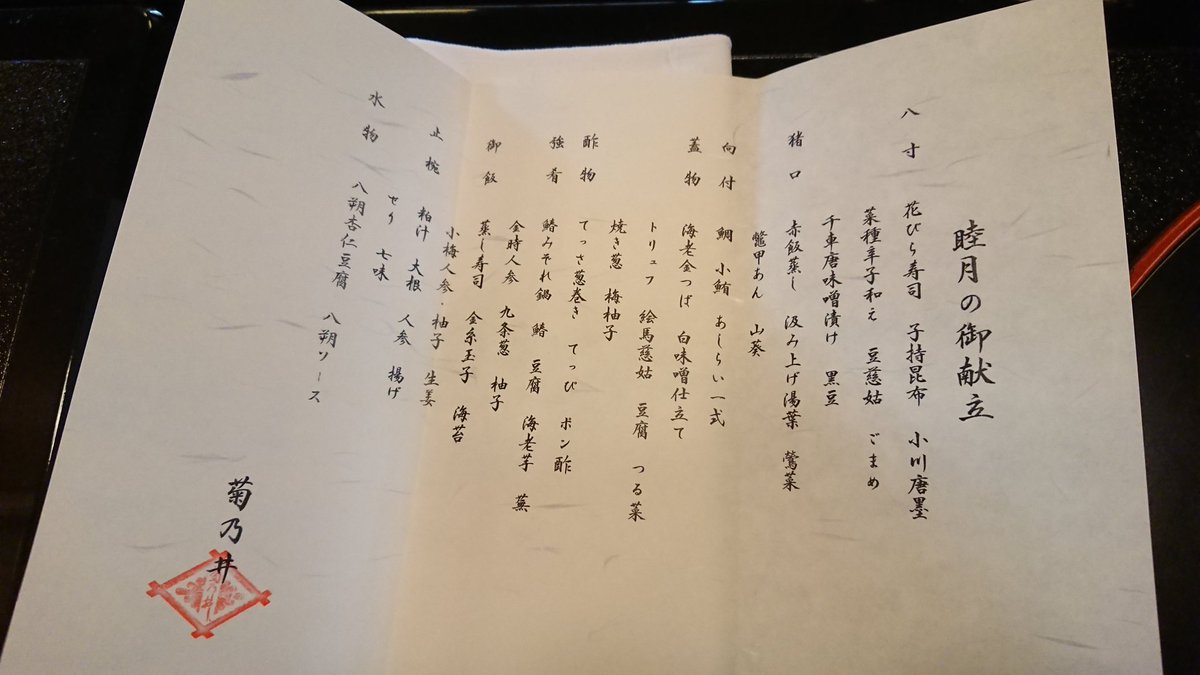 睦月の御献立
八寸 花びら寿司 子持昆布 小川唐墨
菜種辛子和え 豆慈姑 ごまめ
千車唐味噌漬け 黒豆
猪口 赤飯蒸し 汲み上げ湯葉 鶯菜
鼈甲あん 山葵
向付 鯛 小鮪 あしらい一式
蓋物 海老金つば 白味噌仕立て
トリュフ 絵馬慈姑 豆腐 つる菜
焼き葱 梅柚子
酢物 てっさ葱巻き てっぴ ポン酢
強肴 鰆みぞれ鍋 鰆 豆腐 海老芋 蕪
金時人参 九条葱 柚子
御飯 蒸し寿司 金糸玉子 海苔
小梅人参・柚子 生姜
止椀 粕汁 大根 人参 揚げ
せり 七味
水物 八朔杏仁豆腐 八朔ソース
菊乃井